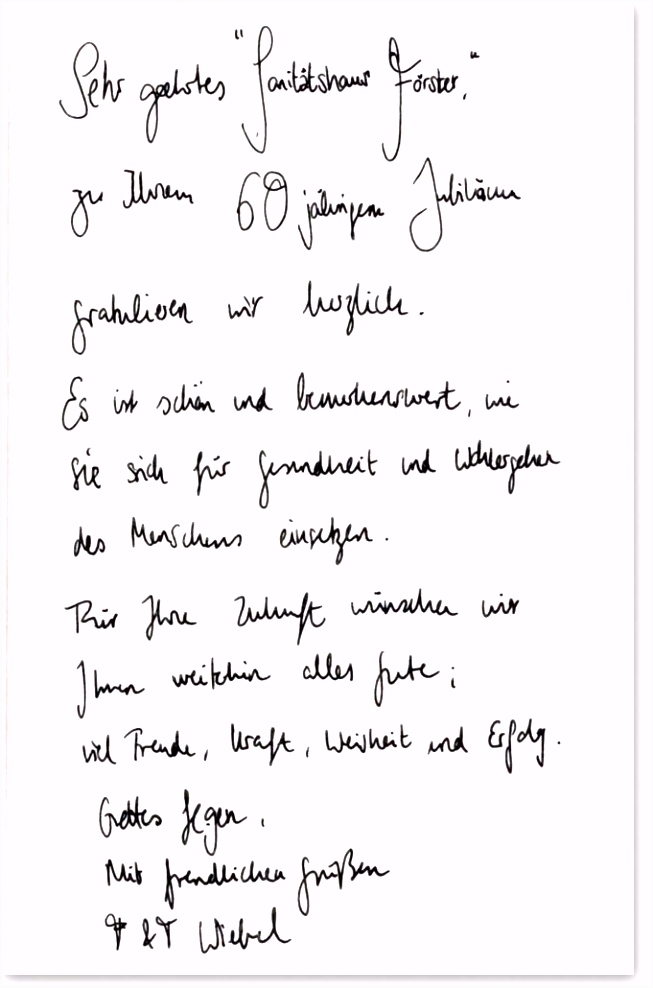 Sehr geehrtes "Sanitätshaus Förster,"
zu Ihrem 60 jährigem Jubiläum
gratulieren wir herzlich.
Es ist schön und bemerkenswert, wie
Sie sich für Gesundheit und Wohlergehen
des Menschens einsetzen.
Für Ihre Zukunft wünschen wir
Ihnen weiterhin alles Gute;
viel Freude, Kraft, Weisheit und Erfolg.
Gottes Segen.
Mit freundlichen Grüßen
& Wiebel